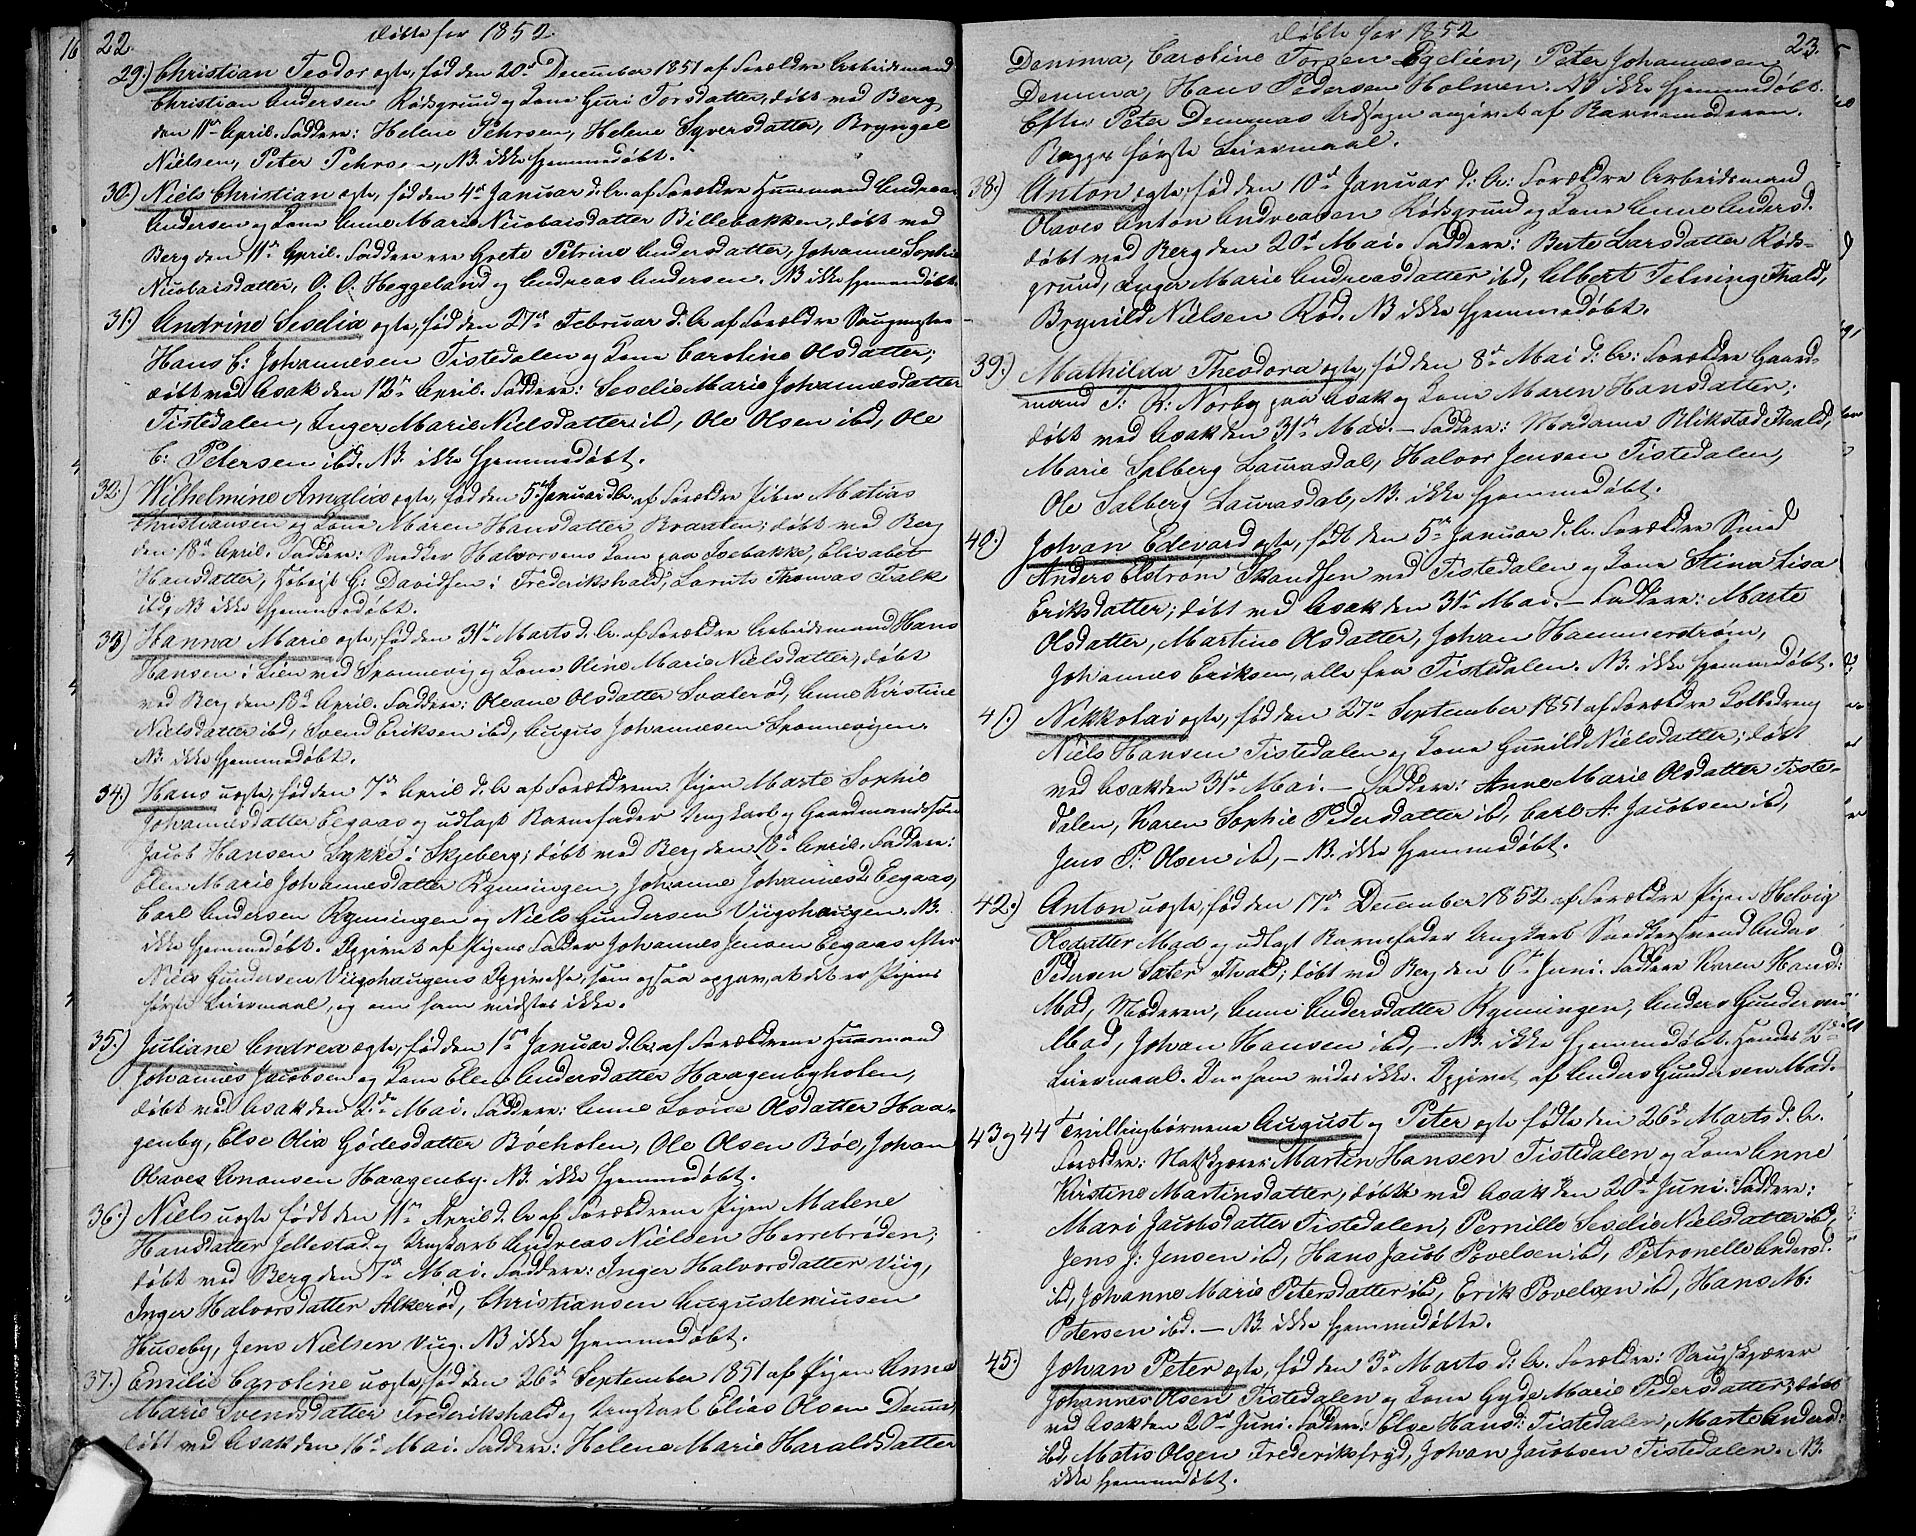 22.
døbte for 1852.
29.) Christian Teodor ægte, fød den 20de December 1851 af Forældre Arbeidsmand
Christian Andersen Rødsgrund og Kone Guri Torsdatter, døbt ved Berg
den 11te April. Faddere: Helene Pehrsen, Helene Syversdatter, Bryngel
Nielsen, Peter Pehrsen, NB. ikke hjemmedøbt.
30.) Niels Christian ægte, fød den 4de Januar d. A. af Forældre Huusmand Andreas
Andersen og Kone Anne Marie Nicolaisdatter Billebakken, døbt ved
Berg den 11te April. Faddere ere Grete Petrine Andersdatter, Johanne Sophie
Nicolaisdatter, O. O. Heggeland og Andreas Andersen. NB ikke hjemmedøbt.
31.) Andrine Seselia ægte, fød den 27de Februar d. A af Forældre Saugmester
Hans C: Johannesen Tistedalen og Kone Caroline Olsdatter;
døbt ved Asak den 12te April. Faddere: Seselie Marie Johannesdatter
Tistedalen, Inger Marie Nielsdatter ibd, Ole Olsen ibd, Ole
C: Petersen ibd. NB. ikke hjemmedøbt.
32.) Wilhelmine Amalia ægte, fød den 5te Januar d. A. af Forældre Matias
Christiansen og Kone Maren Hansdatter Braaten; døbt ved Berg
den 18de April. Faddere: Snedker Halvorsens Kone paa Isebakke, Elisabet
Hansdatter, G: Davidsen i Frederikshald, Thomas Falk
ibd, NB ikke hjemmedøbt.
33) Hanna Marie ægte, fød den 31te Marts d. A. af Forældre Arbeidsmand Hans
Hansen i Lien ved Sponnevig og Kone Oline Marie Nielsdatter, døbt
ved Berg den 18de April. Faddere: Oleane Olsdatter Svalerød, Anne Kirstine
Nielsdatter ibd, Svend Eriksen ibd, August Johannesen Sponnevigen.
NB. ikke hjemmedøbt.
34.) Hans uægte, fød den 7de April d. A af Forældrene Pigen Marte Sophie
Johannesdatter Eegaas og udlagt Barnefader Ungkarl og Gaardmandssøn
Jacob Hansen Lykke i Skjeberg; døbt ved Berg den 18de April. Faddere:
Elen Marie Johannesdatter Rymningen, Johanne Johannesd. Eegaas,
Carl Andersen Rymningen og Niels Gundersen Viigshaugen. NB.
ikke hjemmedøbt. Opgivet af Pigens Fader Johannes Jensen Eegaas efter
Niels Gundersen Viigshaugens Opgivelse, som ogsaa opgav, at det er Pigens
første Leiermaal, og om ham vidstes ikke.
35.) Juliane Andrea ægte, fød den 1ste Januar d. A. af Forældrene Huusmand
Johannes Jacobsen og Kone Elen Andersdatter Haagenbyholen,
døbt ved Asak den 2den Mai. Faddere: Anne Lovise Olsdatter Haa-
genby, Else Olia Gødesdatter Bøeholen, Ole Olsen Bøe, Johan
Olaves Anansen Haagenby. NB. ikke hjemmedøbt.
36.) Niels uægte født den 11te April d. A af Forældrene Pigen Malene
Hansdatter Jellestad og Ungkarl Andreas Nielsen Herrebrøden;
døbt ved Berg den 7de Mai. Faddere: Inger Halvorsdatter Viig,
Inger Halvorsdatter Akerød, Christiansen Augusteniusen
Huseby, Jens Nielsen Viig. NB ikke hjemmedøbt.
37.) Emilie Caroline uægte, fød den 26de September 1851 af Pigen Anne
Marie Svendsdatter Frederikshald og Ungkarl Elias Olsen Demma,
døbt ved Asak den 16de Mai. Faddere: Helene Marie Haraldsdatter
døbte for 1852
23.
Demma, Caroline Torgen Egelien, Peter Johannesen
Demma, Hans Pedersen Holmen. NB ikke hjemmedøbt.
Efter Peter Demmas Udsagn angivet af Barnemoderen.
Begges første Leiermaal.
38.) Anton ægte, fød den 10de Januar d: A: Forældre Arbeidsmand
Olaves Anton Andreasen Rødsgrund og Kone Anne Andersd.
døbt ved Berg den 20de Mai. Faddere: Berte Larsdatter Røds-
grund, Inger Marie Andreasdatter ibd, Albert Telning Fhald,
Brynild Nielsen Rød. NB ikke hjemmedøbt.
39.) Mathilda Theodora ægte, fød den 8de Mai d: A: Forældre Gaard-
mand T: R: Norby paa Asak og Kone Maren Hansdatter;
døbt ved Asak den 31te Mai. — Faddere: Madame Blikstad Fhald,
Marie Salberg Laurasdal, Halvor Jensen Tistedalen,
Ole Salberg Laurasdal, NB. ikke hjemmedøbt.
40.) Johan Edevard ægte, født den 5te Januar d. A. Forældre Smed
Anders Elstrøm Skandsen ved Tistedalen og Kone Stina Lisa
Eriksdatter; døbt ved Asak den 31te Mai. — Faddere: Marte
Olsdatter, Martine Olsdatter, Johan Hammerstrøm,
Johannes Eriksen, alle fra Tistedalen. NB. ikke hjemmedøbt.
41.) Nikkolai ægte, fød den 27de September 1851 af Forældre
Niels Hansen Tistedalen og Kone Gunild Nielsdatter; døbt
ved Asak den 31te Mai. — Faddere: Anne Marie Olsdatter Tiste-
dalen, Karen Sophie Pedersdatter ibd, Carl A. Jacobsen ibd,
Jens P: Olsen ibd, — NB. ikke hjemmedøbt.
42.) Anton uægte, fød den 17de December 1852 af Forældre Pigen Helvig
Olsdatter Mad og udlagt Barnefader Ungkarl Snedkersvend Anders
Pedersen Sæter Fhald; døbt ved Berg den 6te Juni. Faddere Karen Hansd:
Mad, Moderen, Anne Andersdatter Rymningen, Anders Gundersen
Mad, Johan Hansen ibd, — NB. ikke hjemmedøbt. Hendes 2det
Leiermaal. Om ham vides ikke. Opgivet af Anders Gundersen Mad.
43 og 44 Tvillingbørnene August og Peter ægte fødte den 26de Marts d. A.
Forældre: Martin Hansen Tistedalen og Kone Anne
Kirstine Martinsdatter, døbte ved Asak den 20de Juni. Faddere:
Mari Jacobsdatter Tistedalen, Pernille Seselie Nielsdatter ibd,
Jens J: Jensen ibd, Hans Jacob Povelsen ibd, Petronelle Andersd.
ibd, Johanne Marie Petersdatter ibd, Erik Povelsen ibd, Hans M:
Petersen ibd. — NB. ikke hjemmedøbte.
45.) Johan Peter ægte, fød den 3de Marts d: A. Forældre: Saugskjærer
Johannes Olsen Tistedalen og Kone Gyde Marie Pedersdatter; døbt
ved Asak den 20de Juni. Faddere: Else Hansd: Tistedalen, Marte Andersd:
ibd, Matis Olsen Frederiksfryd, Johan Jacobsen Tistedalen. NB.
ikke hjemmedøbt.